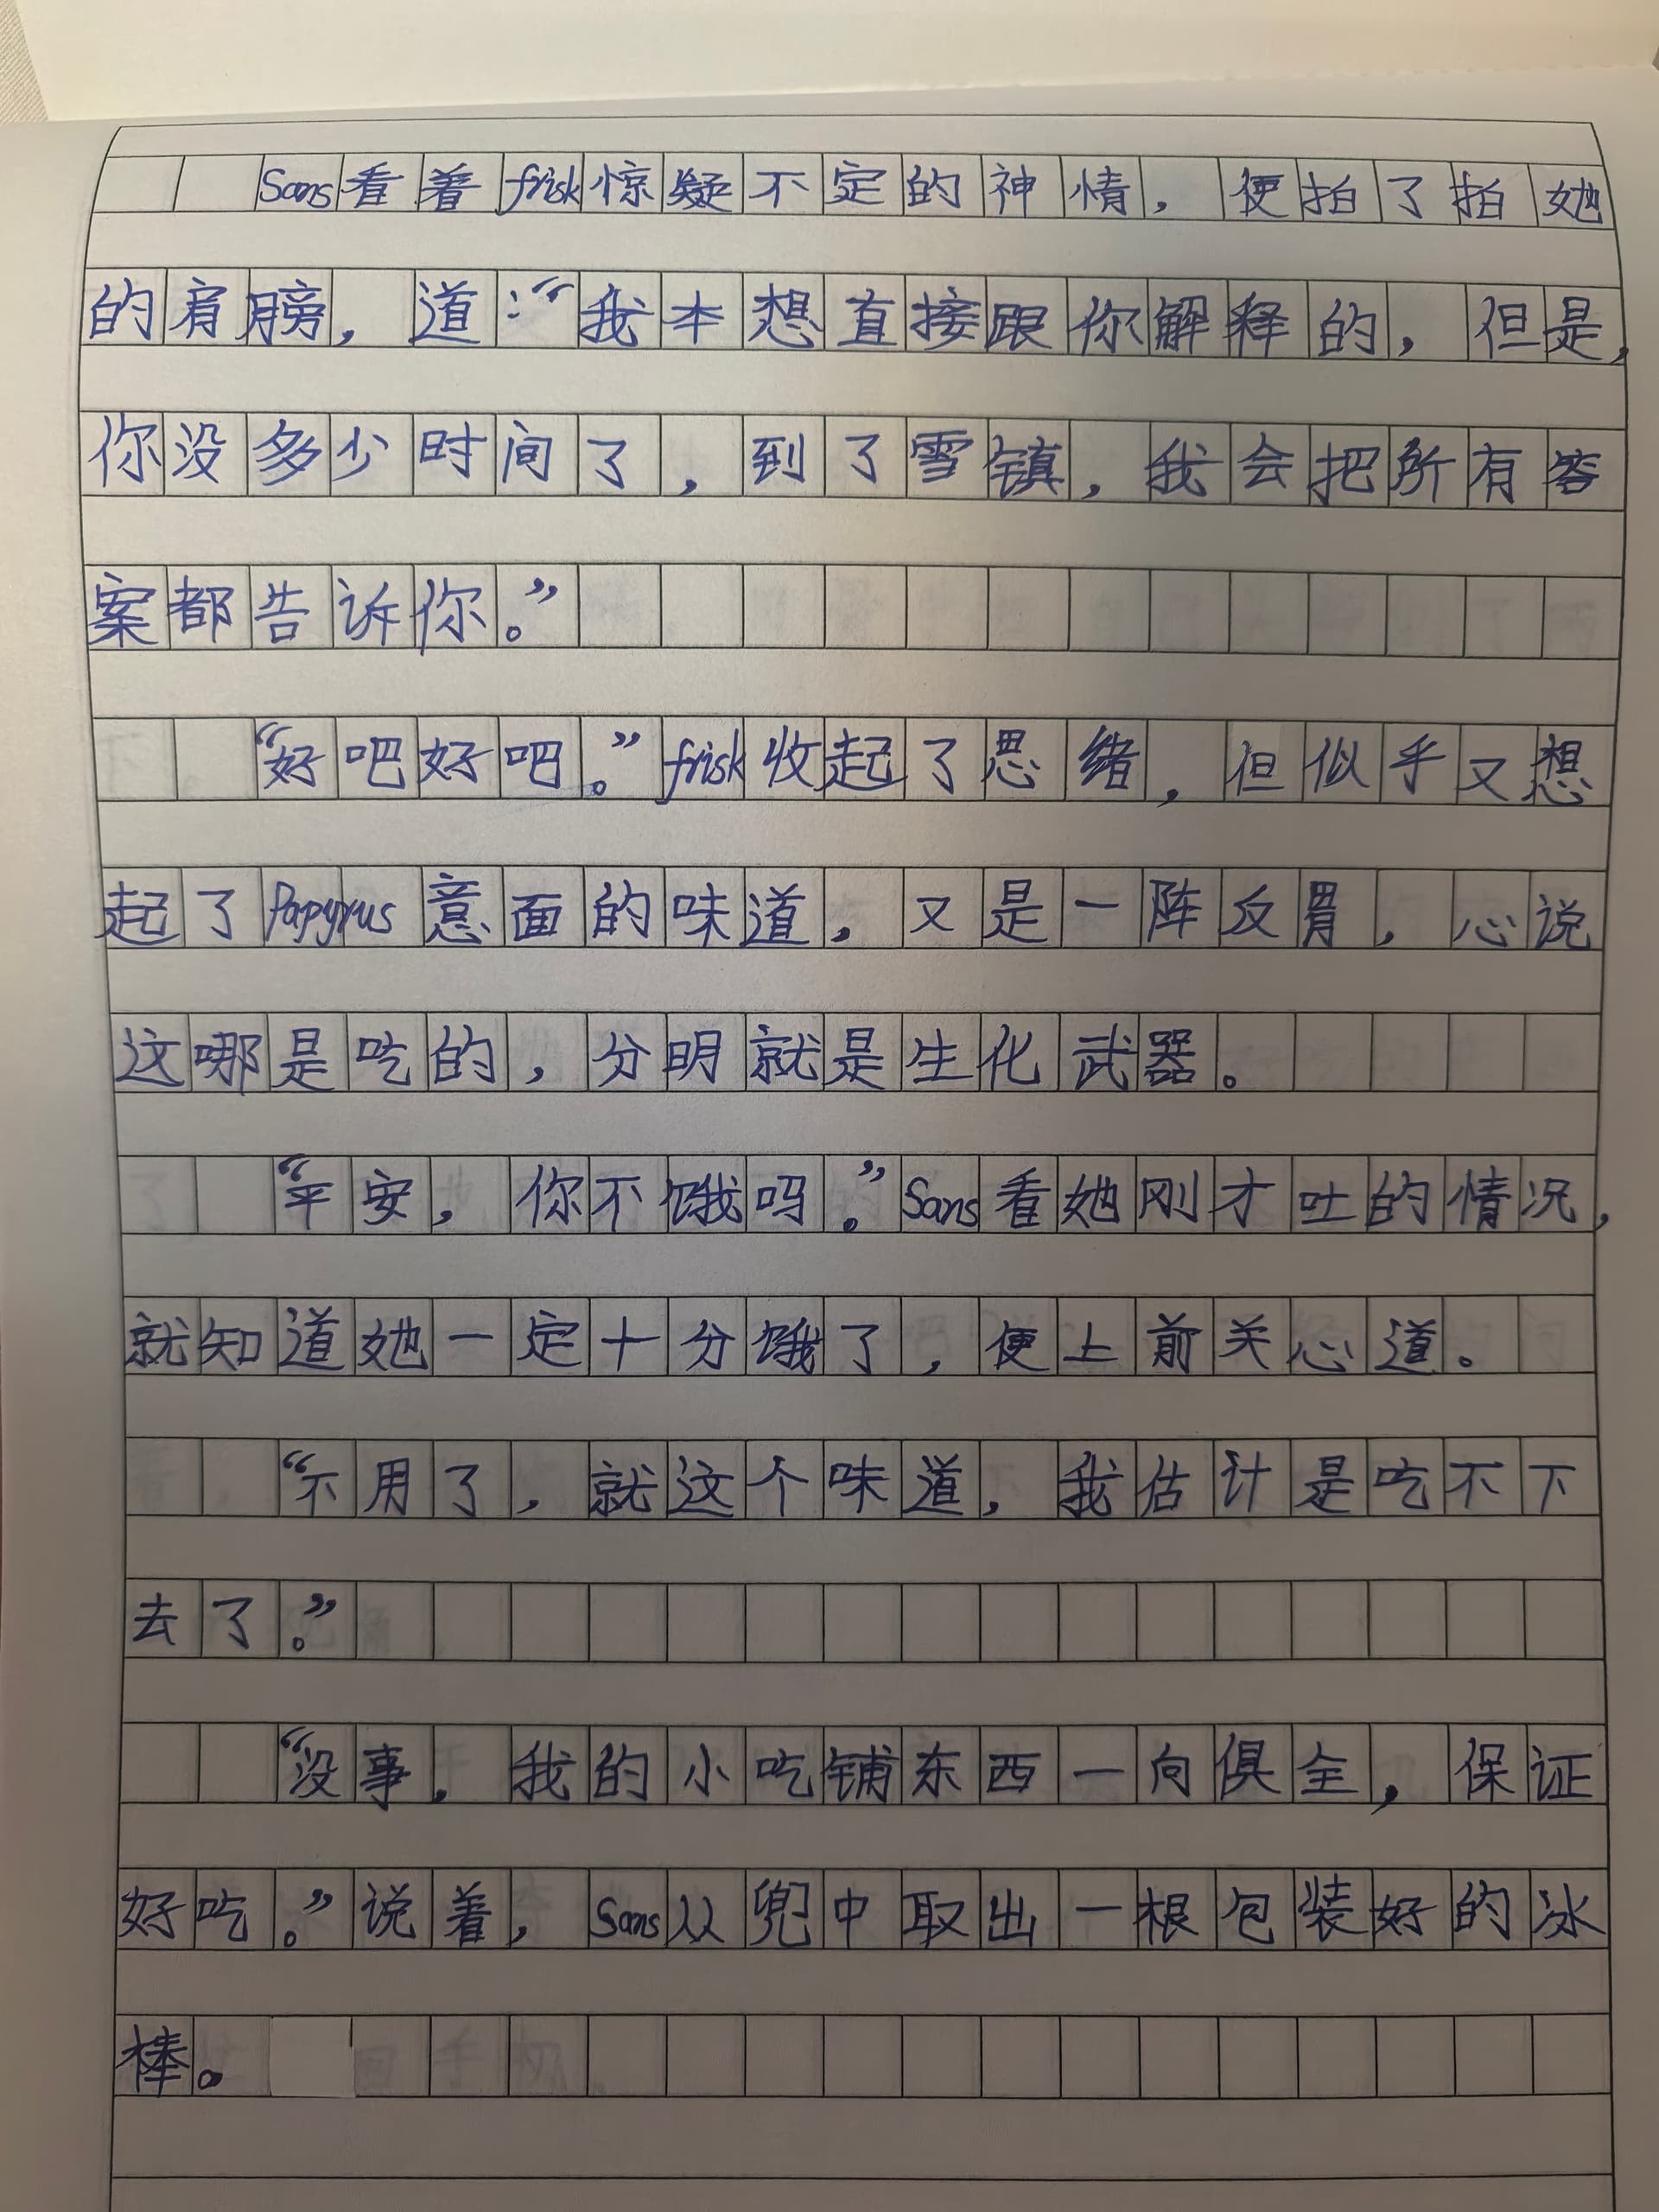 Sans看着frisk惊疑不定的神情，便拍了拍她
的肩膀，道：“我本想直接跟你解释的，但是，
你没多少时间了，到了雪镇，我会把所有答
案都告诉你。”
“好吧好吧。”frisk收起了思绪，但似乎又想
起了Papyrus意面的味道，又是一阵反胃，心说
这哪是吃的，分明就是生化武器。
“平安，你不饿吗。”Sans看她刚才吐的情况，
就知道她一定十分饿了，便上前关心道。
“不用了，就这个味道，我估计是吃不下
去了。”
“没事，我的小吃铺东西一向俱全，保证
好吃。”说着，Sans从兜中取出一根包装好的冰
棒。